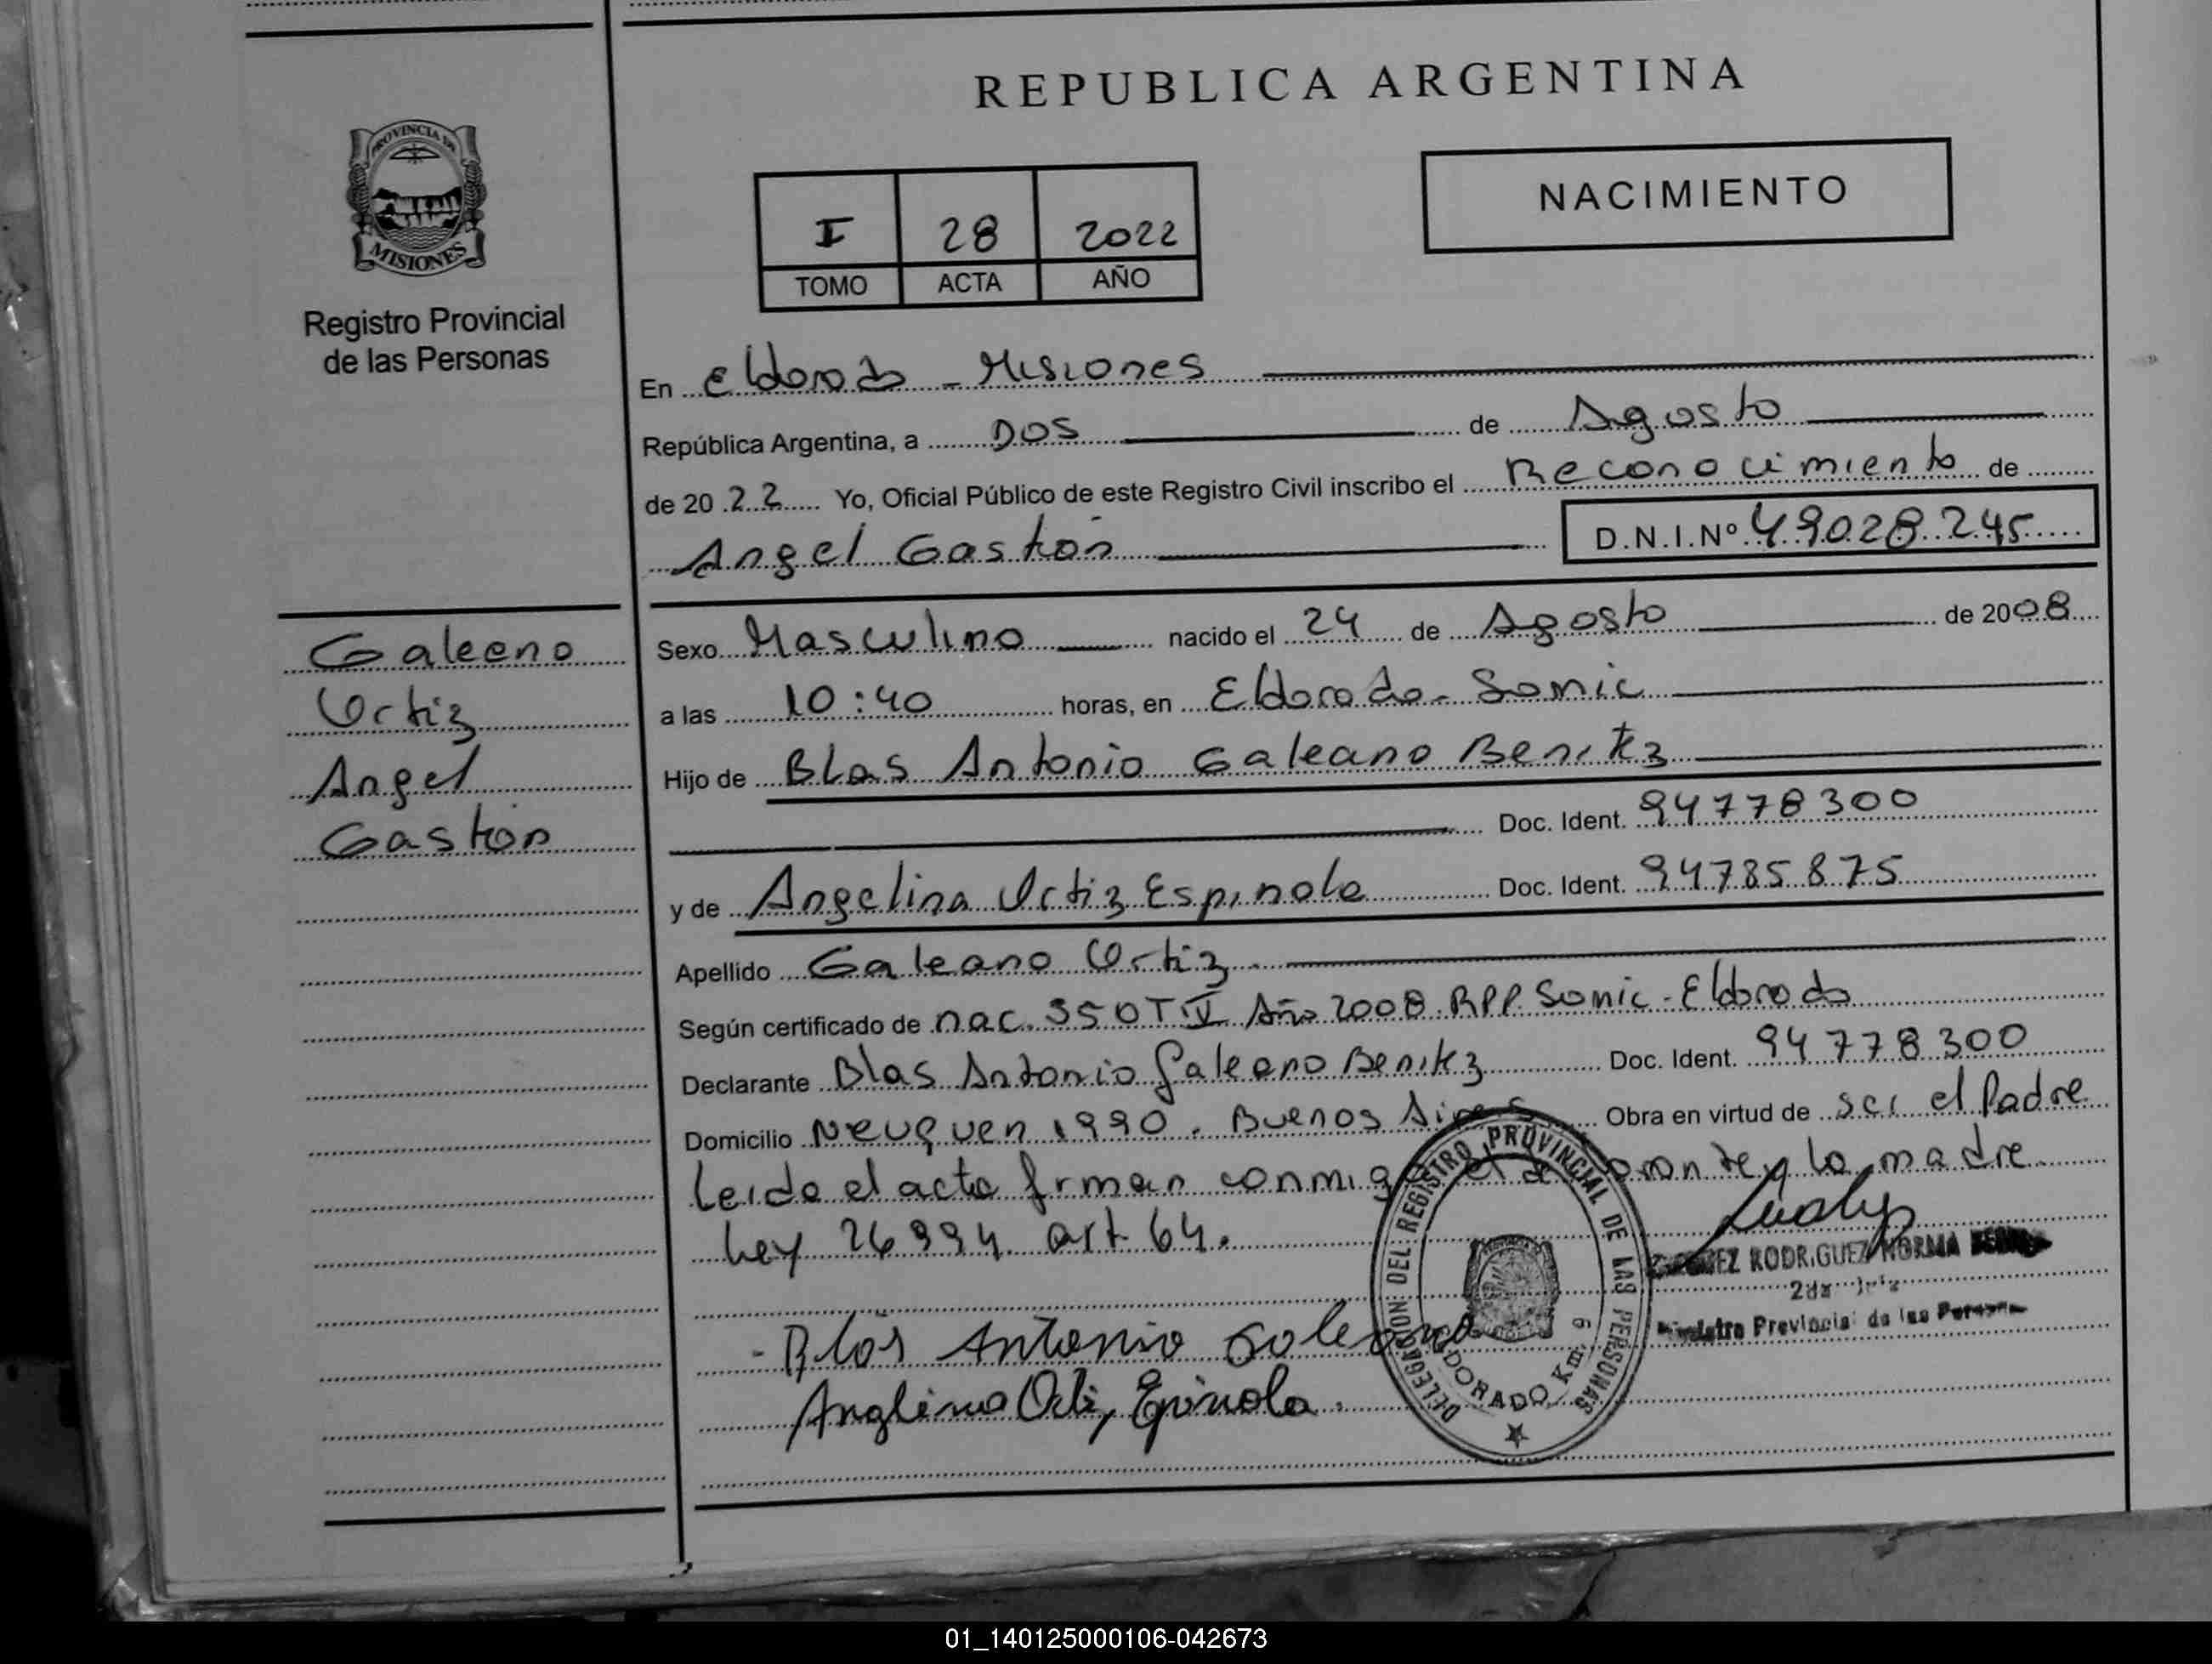 REPUBLICA ARGENTINA
PROVINCIA DE
MISIONES
Registro Provincial
de las Personas
NACIMIENTO
I 28 2022
TOMO ACTA AÑO
En Eldorado - Misiones
República Argentina, a DOS de Agosto
de 2022 Yo, Oficial Público de este Registro Civil inscribo el Reconocimiento de
Angel Gastón D.N.I. Nº 49028245
Galeano
Ortiz
Angel
Gastón
Sexo Masculino nacido el 24 de Agosto de 2008
a las 10:40 horas, en Eldorado - Samic
Hijo de Blas Antonio Galeano Benitez
Doc. Ident. 94778300
y de Angelina Ortiz Espinola Doc. Ident. 94785875
Apellido Galeano Ortiz
Según certificado de nac. 350 T IV Año 2008. RPP. Samic - Eldorado
Declarante Blas Antonio Galeano Benitez Doc. Ident. 94778300
Domicilio Neuquen 1990. Buenos Aires Obra en virtud de ser el Padre
Leida el acta firman conmigo el declarante y la madre
Ley 26994 art 64.
RODRIGUEZ NORMA
Provincial de las Personas
- Blas Antonio Galeano
Anglina Ortiz Epinola.
DELEGACION DEL REGISTRO PROVINCIAL DE LAS PERSONAS
ELDORADO Km. 9
01_140125000106-042673